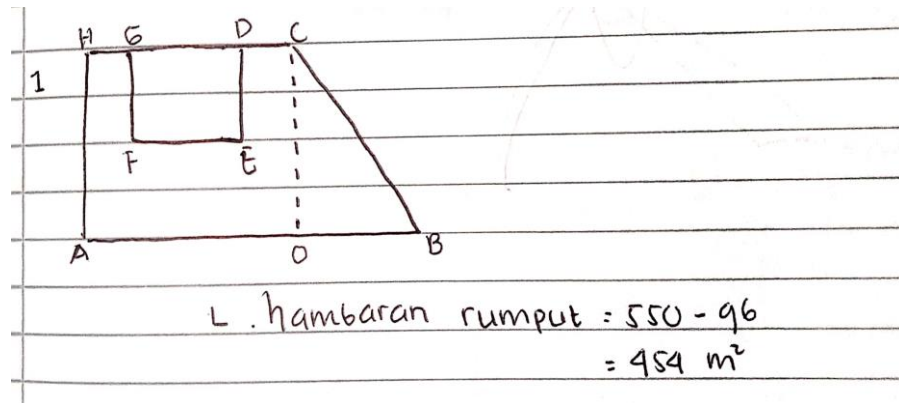 H G D C
1
F E
A O B
L. hambaran rumput = 550 - 96
= 454 m²